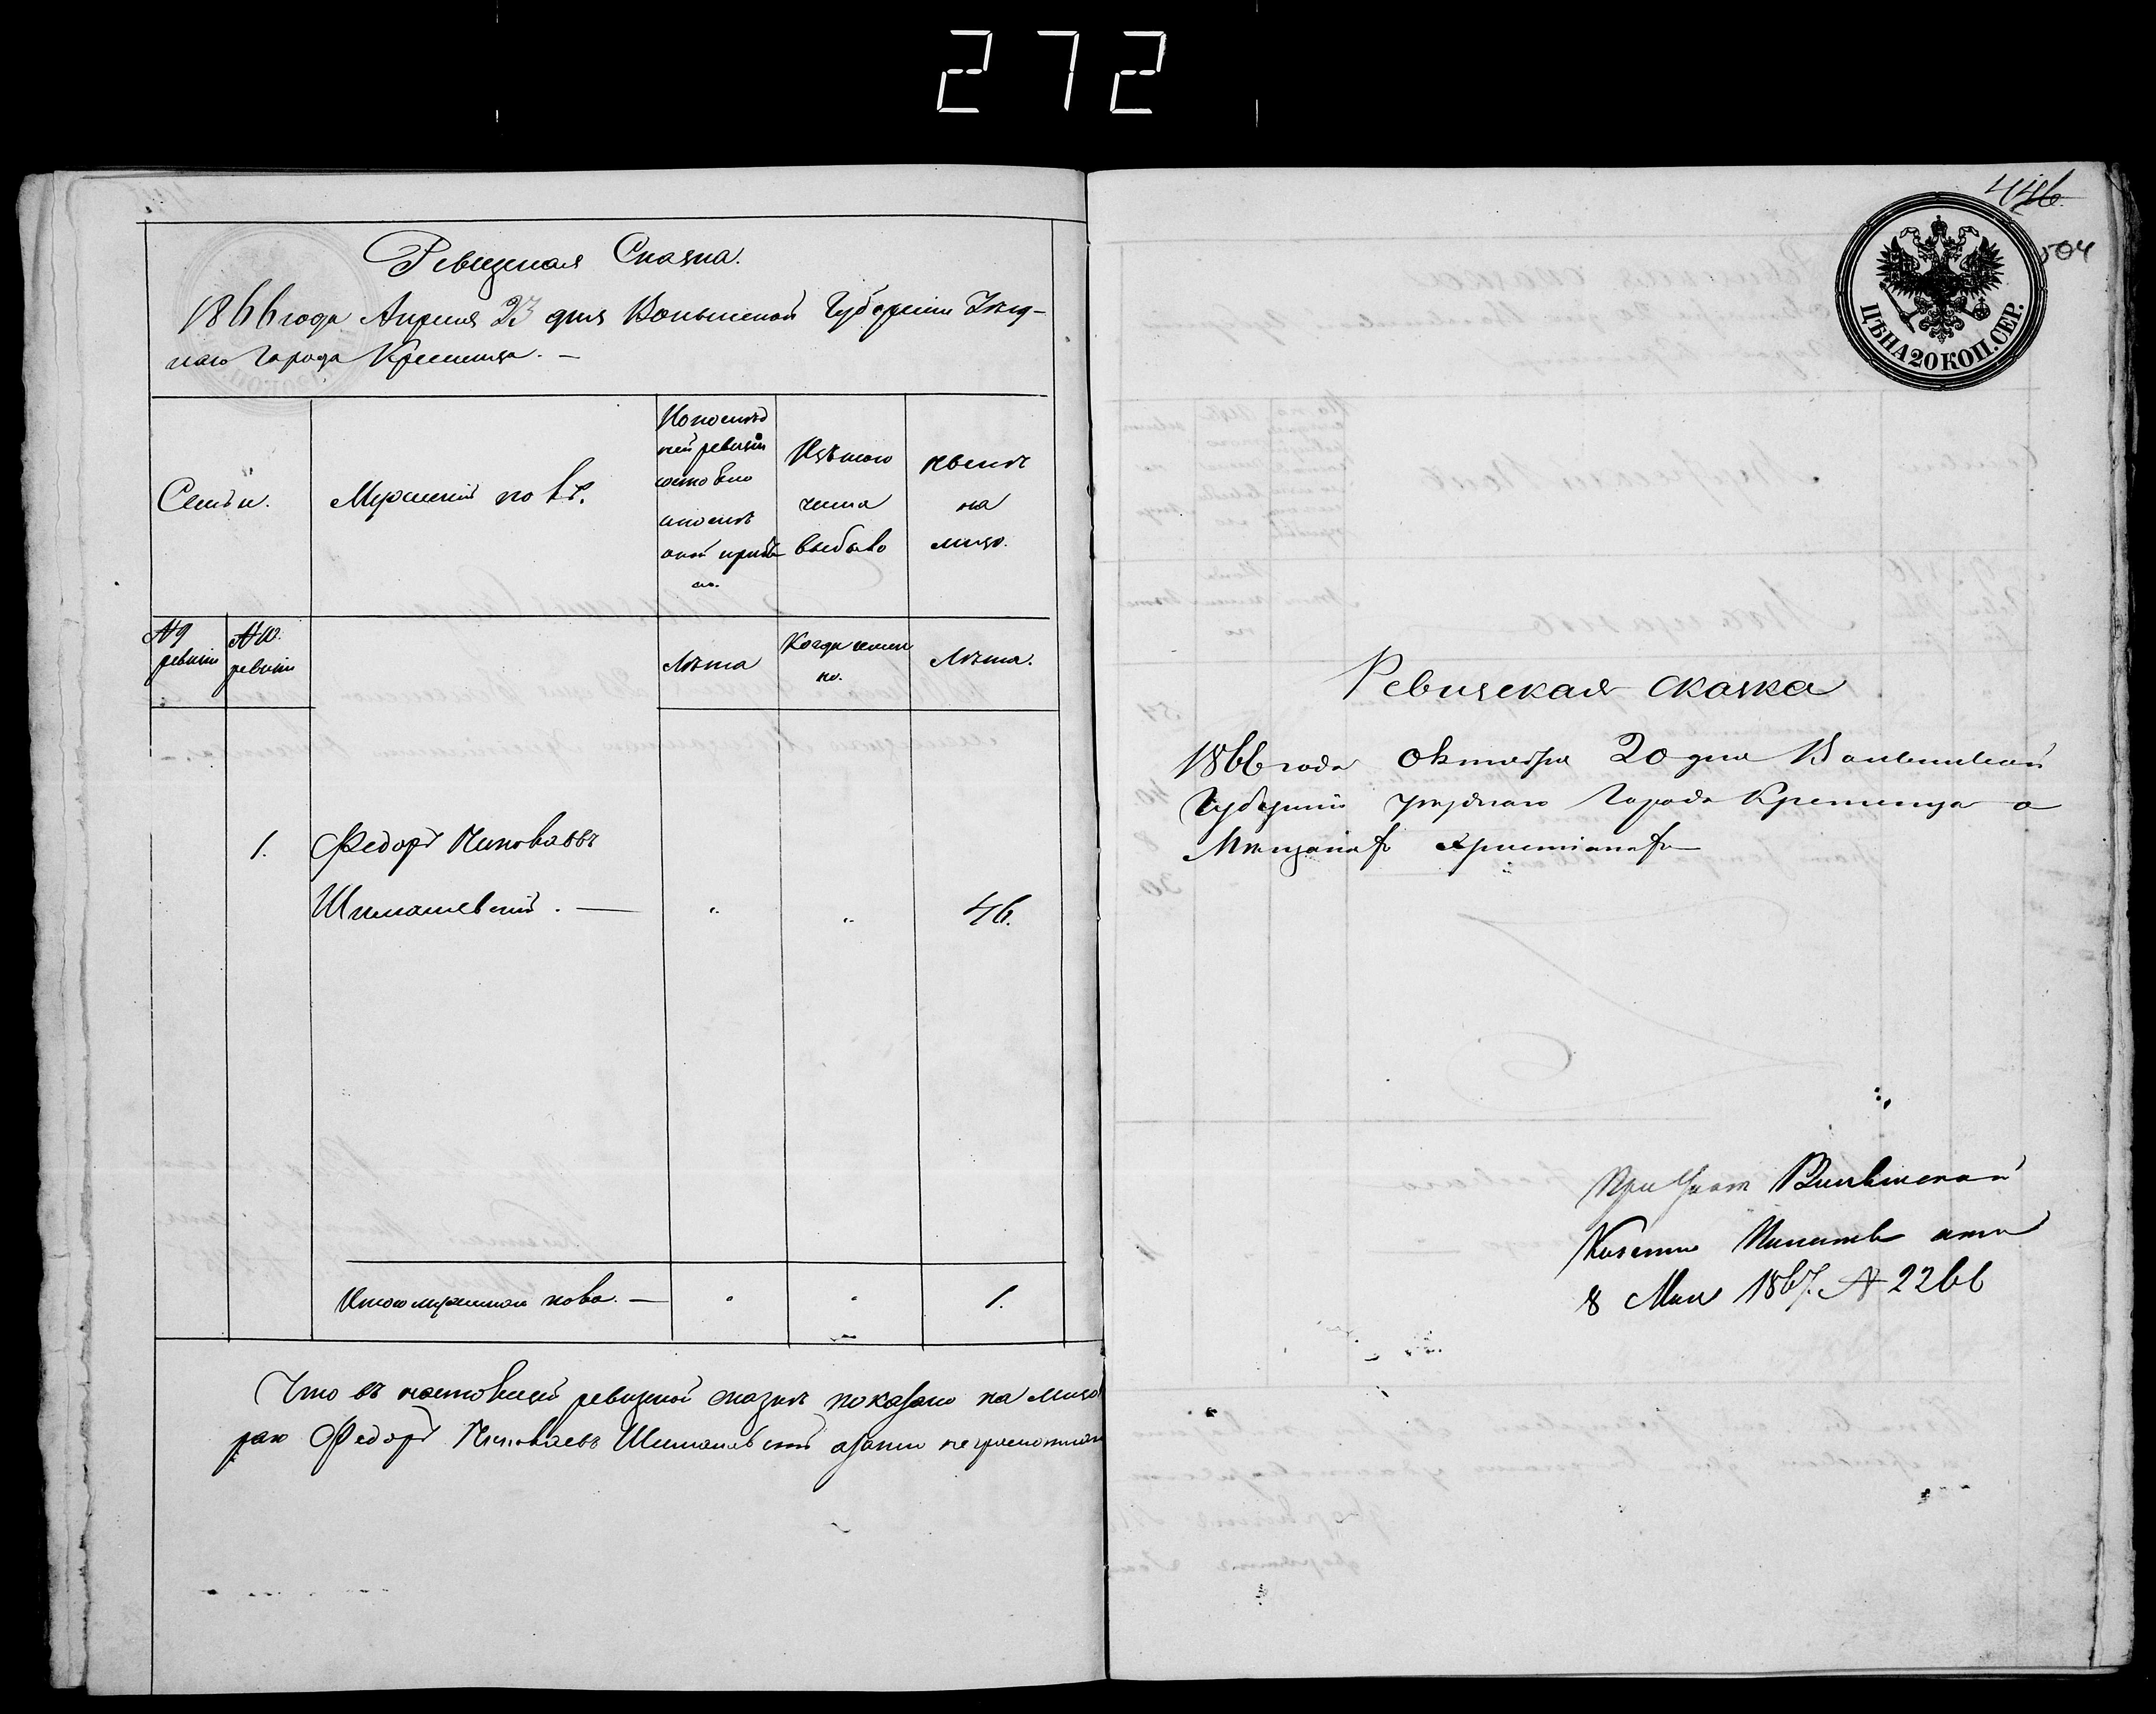 272
Ревизская Сказка.
1866 года Апреля 23 дня Волынской Губернии Уѣзд-
наго Города Кременца. —
Семьи.
Мужескій полъ.
По послѣд
ней ревизіи
состояло
и послѣ
оной прибы
ло.
Изъ того
числа
выбыло
нынѣ
на
лицо.
№ 9
ревизіи
№ 10.
ревизіи
Лѣта
Когда имен
но.
Лѣта.
1.
Федоръ Николаевъ
Шимановскій. —
46.
Итого мужеска пола. —
1.
Что въ настоящей ревизской сказкѣ показано на лицо
Федоръ Николаевъ
446.
504
ЦѢНА 20 КОП. СЕР.
Ревизская сказка
1866 года октября 20 дня Волынской
Губерніи уѣзднаго Города Кременца о
Мѣщанахъ христіанахъ
При Указѣ Волынской
Казенной Палаты отъ
8 Мая 1867. № 2266